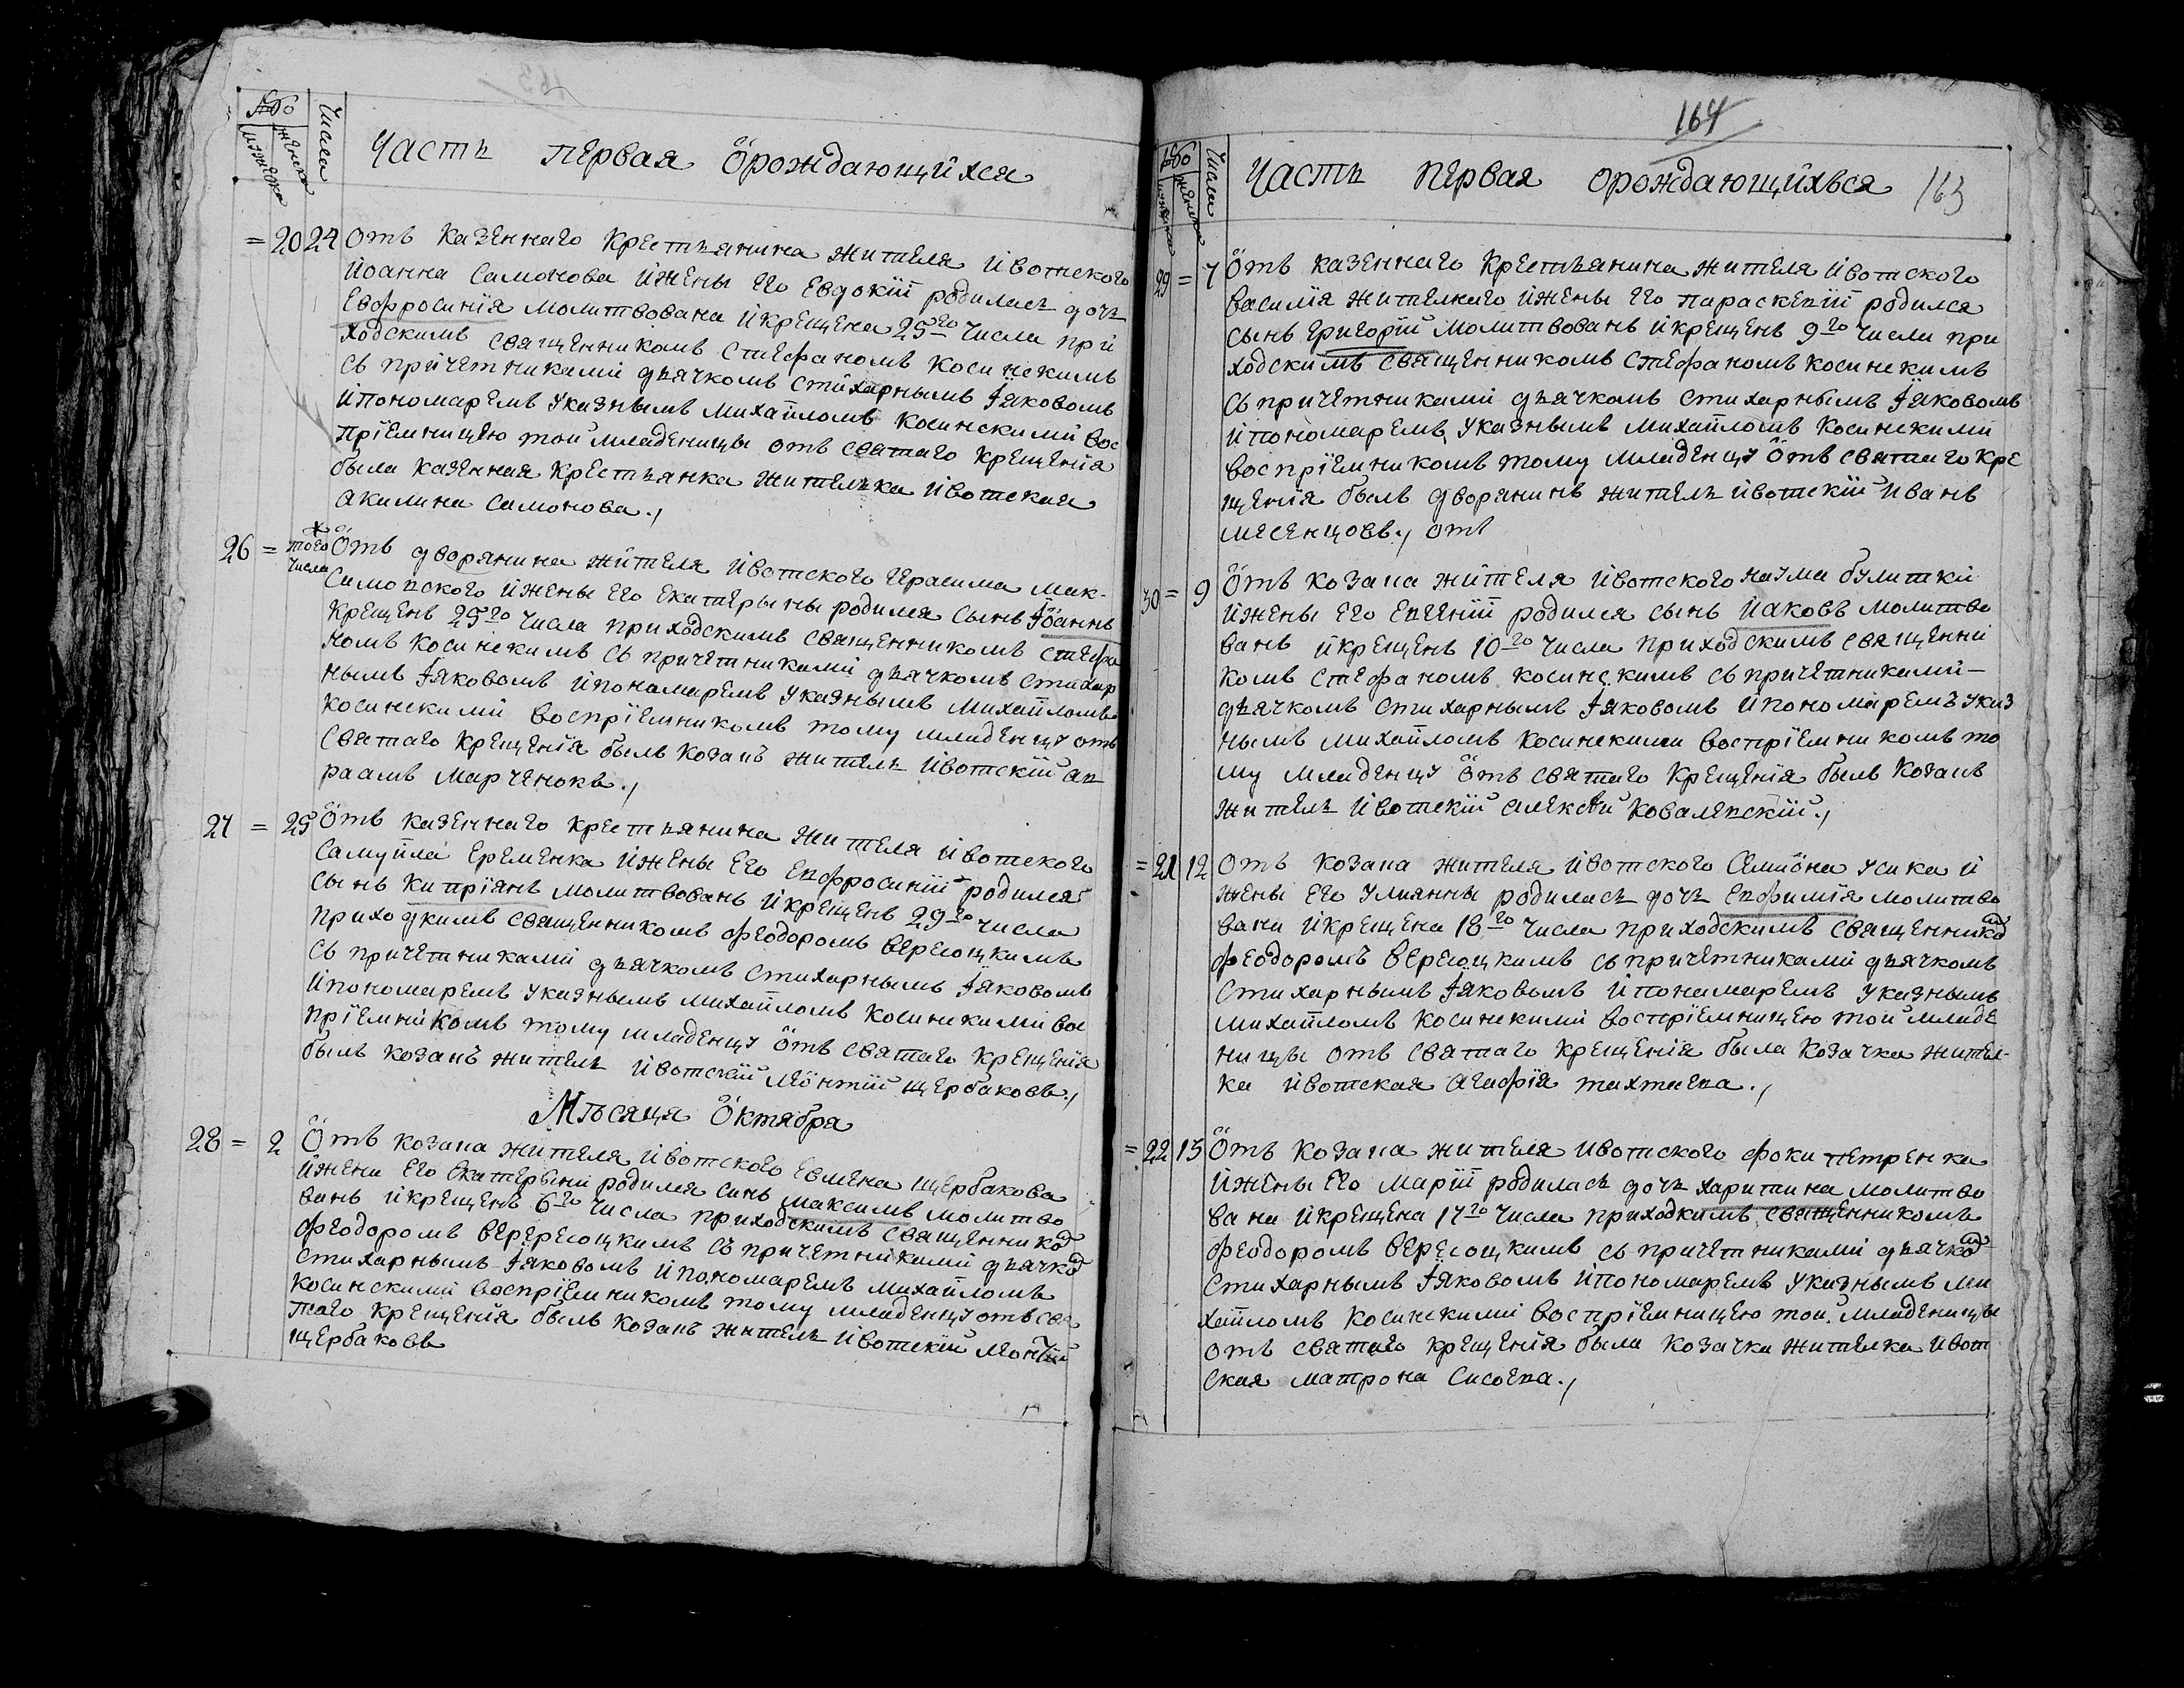 Число
мужеска
женска
Числа
Часть первая ö рождающийхся
= 20 24 Отъ казеннаго крестьянина жителя ивотского
йоанна Самонова йжены его Евдокіи родилась дочь
Евфросинія молитвована йкрещена 25го числа при
ходскимъ священникомъ Стефаномъ Косинскимъ
съ причетниками дьячкомъ стихарнымъ Іяковомъ
йпономаремъ указнымъ Михайломъ Косинскими вос
пріемницею той младеницы отъ святаго крещенія
была казенная крестьянка жителька ивотская
акилина Самонова.
26 = того числа Отъ дворянина жителя ивотского Герасима Мак-
Симовского йжены его екатерыны родился сынъ Іоаннъ
крещенъ 25го числа приходскимъ священникомъ Стефа
номъ Косинскимъ съ причетниками дьячкомъ стихар
нымъ Іяковомъ йпономаремъ указнымъ Михайломъ
Косинскими воспріемникомъ тому младенцу отъ
святаго крещенія былъ козакъ житель ивотскій ав
раамъ Марченокъ.
27 = 25 Отъ казеннаго крестьянина жителя ивотского
Самуйла Еременка йжены его Евфросиніи родился
сынъ Кипріянъ молитвованъ йкрещенъ 29го числа
приходкимъ священникомъ Феодоромъ Вересоцкимъ
съ причетниками дьячкомъ стихарнымъ Іяковомъ
йпономаремъ указнымъ Михайломъ Косинскими вос
пріемникомъ тому младенцу отъ святаго крещенія
былъ козакъ житель ивотскій Леонтій Щербаковъ.
Мѣсяця Октября
28 = 2 Отъ козака жителя ивотского Евмена Щербакова
йжени его Екатерыни родился синъ Максимъ молитво
ванъ йкрещенъ 6го числа приходскимъ священником
Феодоромъ Верересоцкимъ съ причетниками дьячком
стихарнымъ Іяковомъ йпономаремъ Михайломъ
Косинскими воспріемникомъ тому младенцу отъ свя
таго крещенія былъ козакъ житель ивотскій Леонтій
Щербаковъ
164
Число
мужеска
женска
Числа
Часть первая орождающийхься 163
29 = 7 Отъ казеннаго крестьянина жителя ивотского
Василія Жителнаго йжены его Параскевіи родился
сынъ Григорій молитвованъ йкрещенъ 9го числа при
ходскимъ священникомъ Стефаномъ Косинскимъ
съ причетниками дьячкомъ стихарнымъ Іяковомъ
йпономаремъ указнымъ Михайломъ Косинскими
воспріемникомъ тому младенцу отъ святаго кре
щенія былъ дворянинъ житель ивотскій Иванъ
Месенцовъ. отъ
30 = 9 Отъ козака жителя ивотского Наума Булитки
йжены его Евгеніи родился сынъ Иаковъ молитво
ванъ йкрещенъ 10го числа приходскимъ священни
комъ Стефаномъ Косинскимъ съ причетниками —
дьячкомъ стихарнымъ Іяковомъ йпономаремъ указ
нымъ Михайломъ Косинскими воспріемникомъ то
му младенцу отъ святаго крещенія былъ козакъ
житель ивотскій Алексѣй Ковалевскій.
= 21 12 Отъ козака жителя ивотского Симиона Усика й
жены его Улиянны родилась дочь Евфимія молитво
вана йкрещена 18го числа приходскимъ священником
Феодоромъ Вересоцкимъ съ причетниками дьячкомъ
стихарнымъ Іяковомъ йпонамаремъ указнымъ
Михайломъ Косинскими воспріемницею той младе
ницы отъ святаго крещенія была козачка жител-
ка ивотская Агафія Тахтаева.
= 22 15 Отъ козака жителя ивотского Фоки Петренка
йжены его Маріи родилась дочь Харитина молитво
вана йкрещена 17го числа приходкимъ священникомъ
Феодоромъ Вересоцкимъ съ причетниками дьячком
стихарнымъ Іяковомъ йпономаремъ указнымъ Ми
хайломъ Косинскими воспріемницею той младеницы
отъ святаго крещенія была козачка жителка ивот
ская Матрона Сисоева.